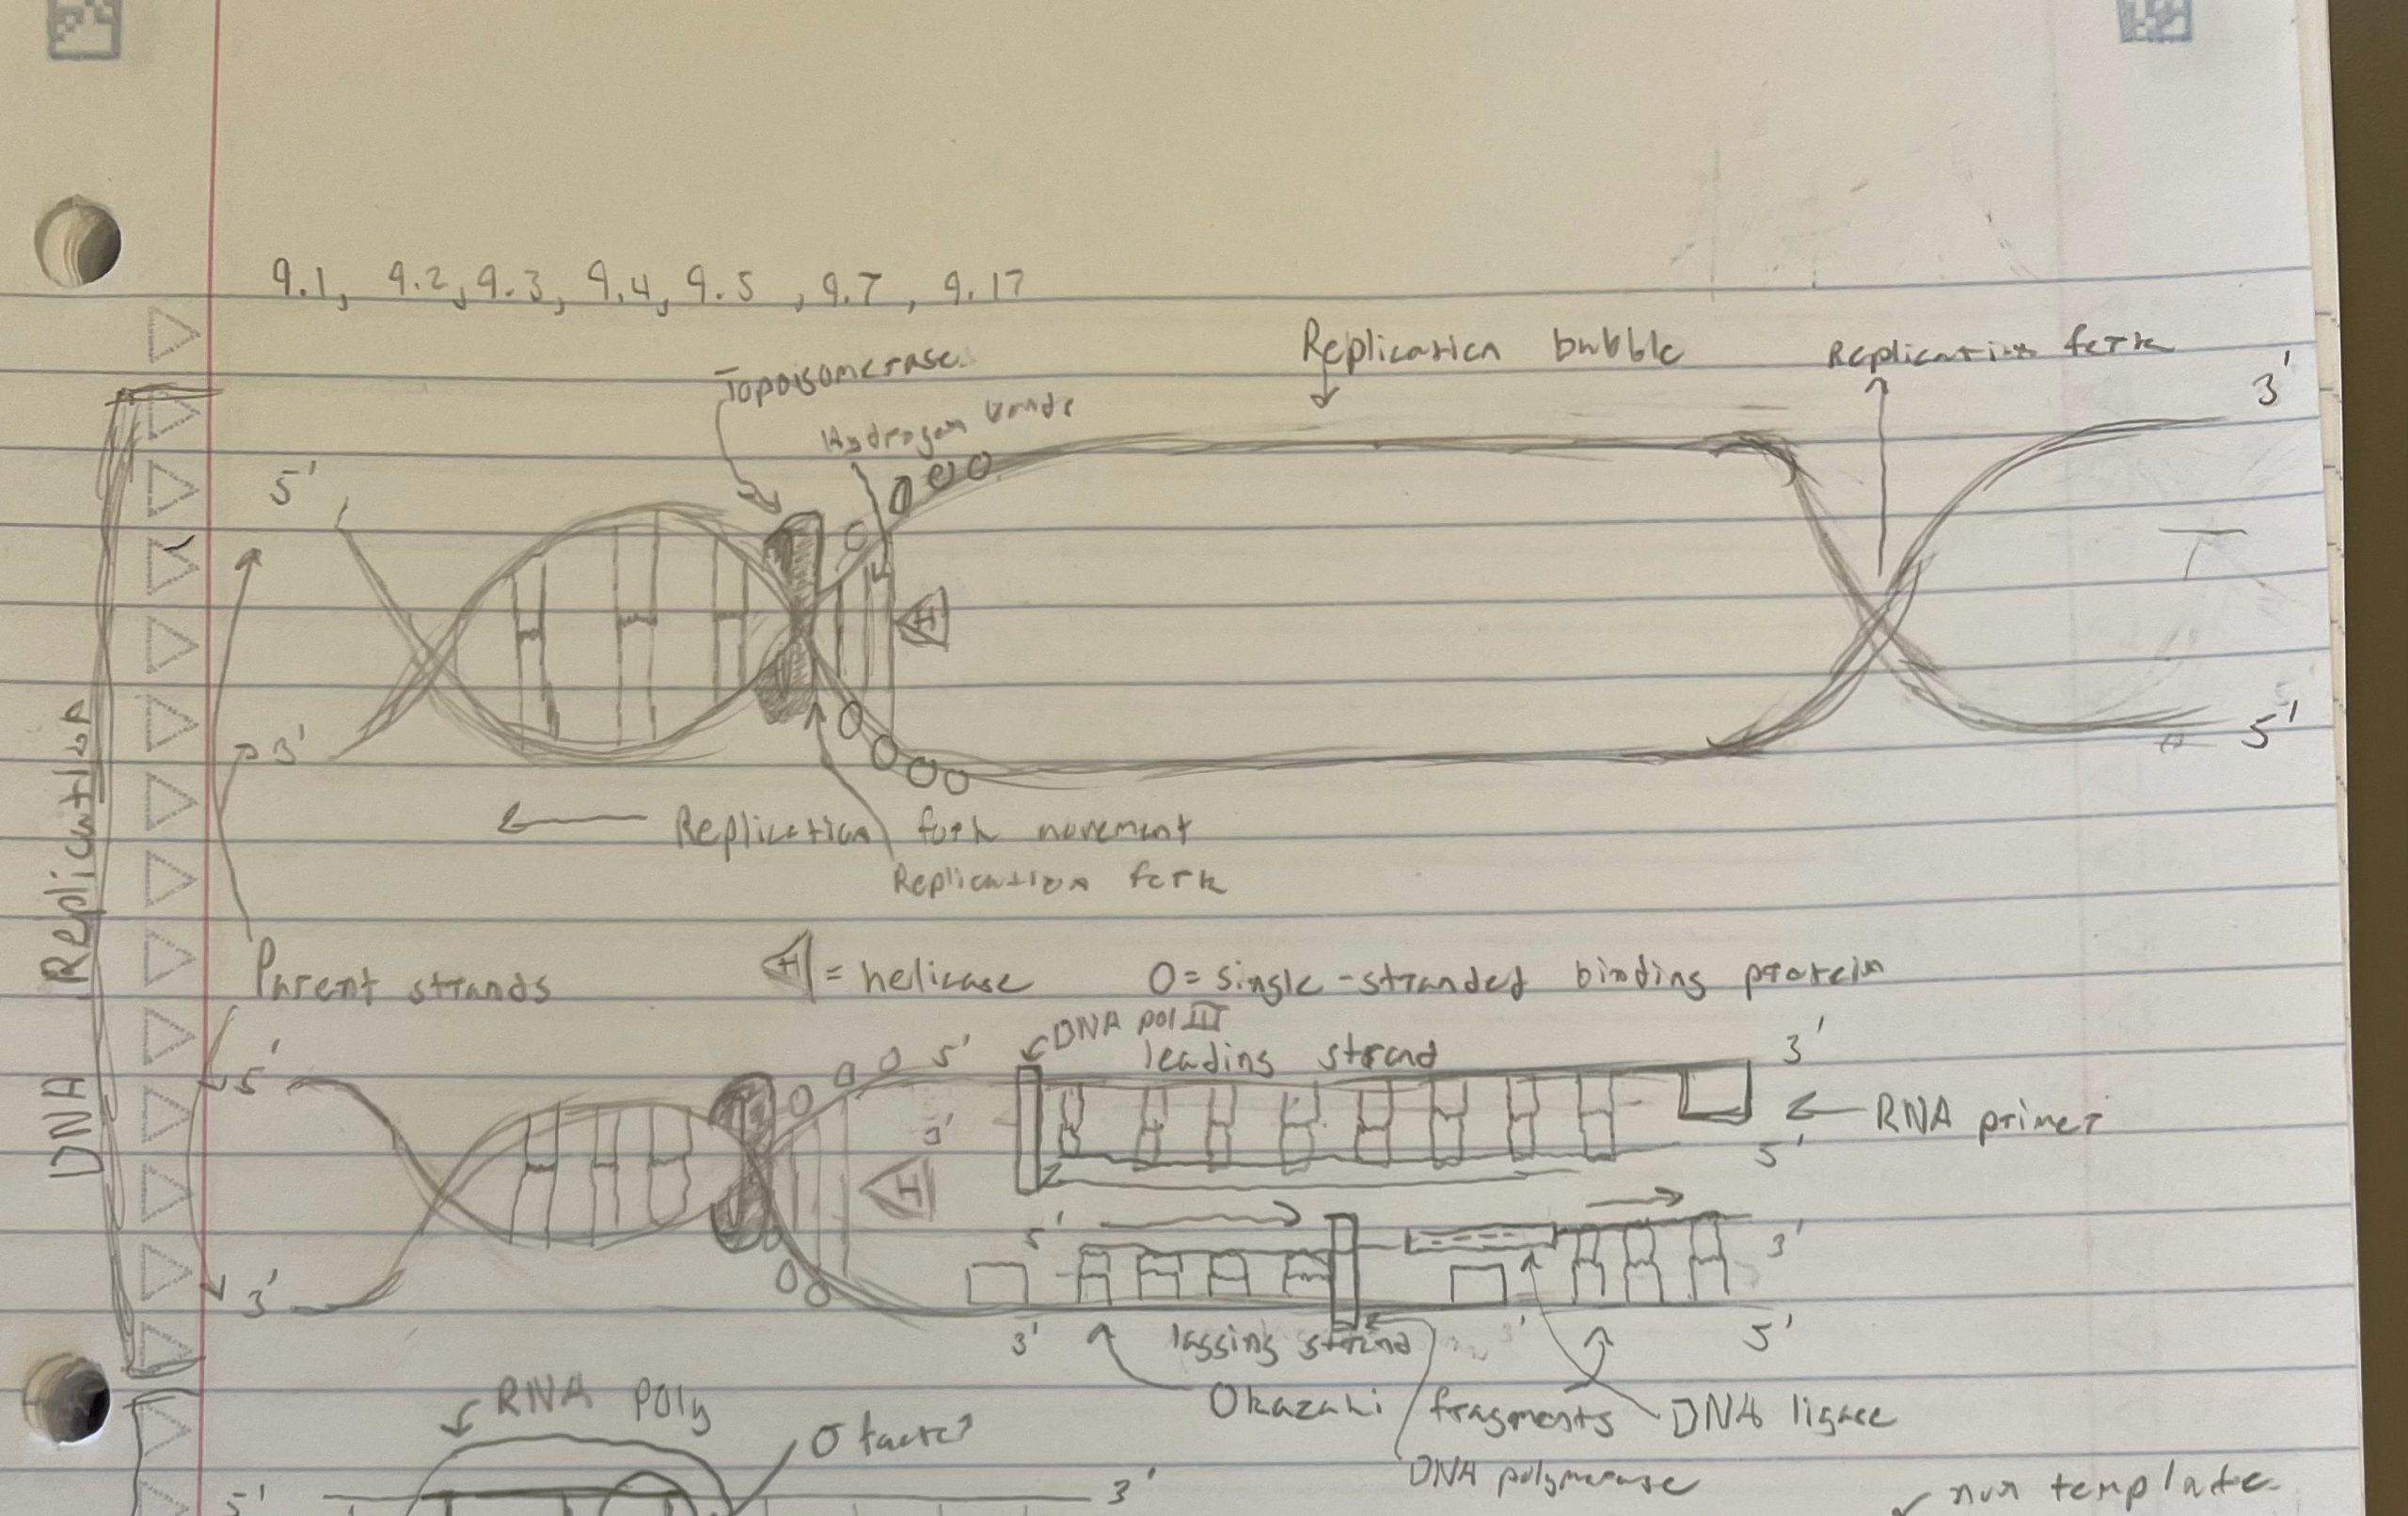 9.1, 9.2, 9.3, 9.4, 9.5, 9.7, 9.17
Replication bubble
Replication fork
Topoisomerase
Hydrogen bonds
3'
5'
H
3'
5'
← Replication fork movement
Replication fork
DNA Replication
Parent strands
H = helicase O = single-stranded binding protein
DNA pol III
leading strand
3'
5'
5'
3'
← RNA primer
5'
H
5'
3'
3'
3'
lagging strand
3'
5'
Okazaki fragments
DNA ligase
DNA polymerase
RNA poly
σ factor
5'
3'
non template